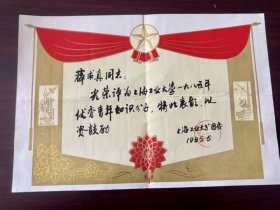 薛成真同志:
光荣评为上海工业大学一九八五年
优秀青年知识分子,特此表彰,以
资鼓励
上海工业大学团委
1985.5